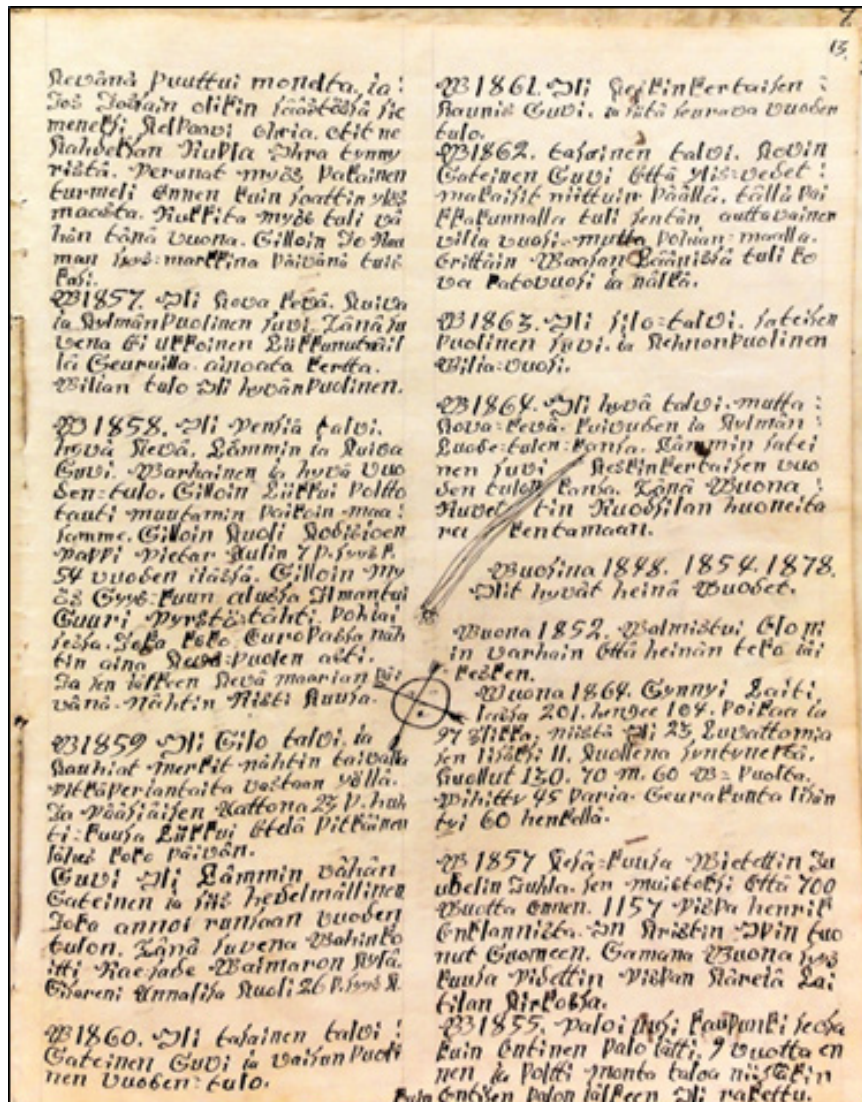 13.
Kevänä puuttui mondta, ia:
Jos Joskain olikin säästössä se
meneksi Kelpaavi ohria. otit ne
Kahdeksan Rupla Ohra tynny
ristä. Perunat myös Pakainen
turmeli Ennen kuin saattin ylös
maasta. Rukkita myös tuli vä
hän tänä vuona. Silloin Jo Rau
man syys=markkina päivänä tuis
kasi.
W1857. Oli Kova kevä. Kuiva
ia Kylmän Puolinen suvi. Tänä su
vena Ei ukkoinen Liikkunut näil
lä Seuruilla. ainoata kertta.
Wilian tulo Oli hyvän Puolinen.
W1858. Oli Pensiä talvi.
hyvä Kevä. Lämmin ia Kuiva
Suvi. Warhainen ia hyvä vuo
den=tulo. Silloin Liikkui Poltto
tauti muutamin paikoin maa=
samme. Silloin Kuoli Kodisioen
Pappi Pietar Kulin 7 P. syysk.
54 vuoden iiässä. Silloin my
ös Syys=kuun alussa Ilmantui
Suuri Pyrstö=tähti. Pohiai
sessa. Joka koko Europassa näh
tin aina Kevä=Puolen asti.
Ja sen iälkeen Kevä maarian päi
vänä. Nähtin Risti Kuusa.
W1859 Oli Silo talvi. ia
Kauhiat merkit nähtin taivalla
Pitkäperiantaita vastaan yöllä.
Ja Pääsiäisen Aattona 23 P. huh
ti=kuusa Liikkui Etelä Pitkäinen
lähes koko päivän.
Suvi Oli Lämmin vähän
Sateinen ia siis hedelmällinen
Joka annoi runsaan vuoden
tulon. Tänä suvena Wahinko
itti Raesade Waimaron Kylä.
Sisareni Annalisa Kuoli 26 P. syys K.
W1860. Oli tasainen talvi:
Sateinen Suvi ia vaisun Puoli
nen vuoden=tulo.
W1861. Oli Keskinkertaisen:
Kaunis Suvi. ia sitä seurava vuoden
tulo.
W1862. tasainen talvi. Kovin
Sateinen Suvi Että ylis=vedet:
makaisit niittuin Päällä. tällä Pai
kkakunnalla tuli sentän auttavainen
vilia vuosi. mutta Pohian=maalla.
Erittäin Waasan Läänissä tuli ko
va katovuosi ia nälkä.
W1863. Oli silo=talvi. sateisen
Puolinen suvi. ia Kehnon Puolinen
Wilia=vuosi.
W1864. Oli hyvä talvi. mutta:
Kova=kevä. kuivuden ia Kylmän:
Luode=tulen=kansa. Lämmin satei
nen suvi Keskinkertaisen vuo
den tulon kansa. Tänä Wuona:
Ruvettin Ruodsilan huoneita
rakentamaan.
Wuosina 1848. 1854. 1878.
Olit hyvät heinä Wuodet.
Wuona 1852. Walmistui Eloni
in varhain Että heinän teko iäi
kesken.
Wuona 1864. Synnyi Laiti
lassa 201. hengee 104. Poikaa ia
97 Plikka. niistä Oli 23. Luvattomia
sen lisäksi 11. Kuollena syntynettä.
Kuollut 130. 70 m. 60 W= Puolta.
Wihitty 45 Paria. Seurakunta lisän
tyi 60 henkellä.
W1857 Kesä=kuusa Wietettin Ju
ubelin Juhla. sen muistoksi Että 700
Wuotta Ennen. 1157 Pispa henrik
Enklannista. On Kristin Opin tuo
nut Suomeen. Samana Wuona syys
kuusa Pidettin Piispan Käreiä Lai
tilan Kirkossa.
W1855. Paloi uusi kaupunki seosa
kuin Entinen Palo iätti. 9 vuotta en
nen ia Poltti monta taloa niistäkin
kuin Entisen palon iälkeen Oli rakettu.